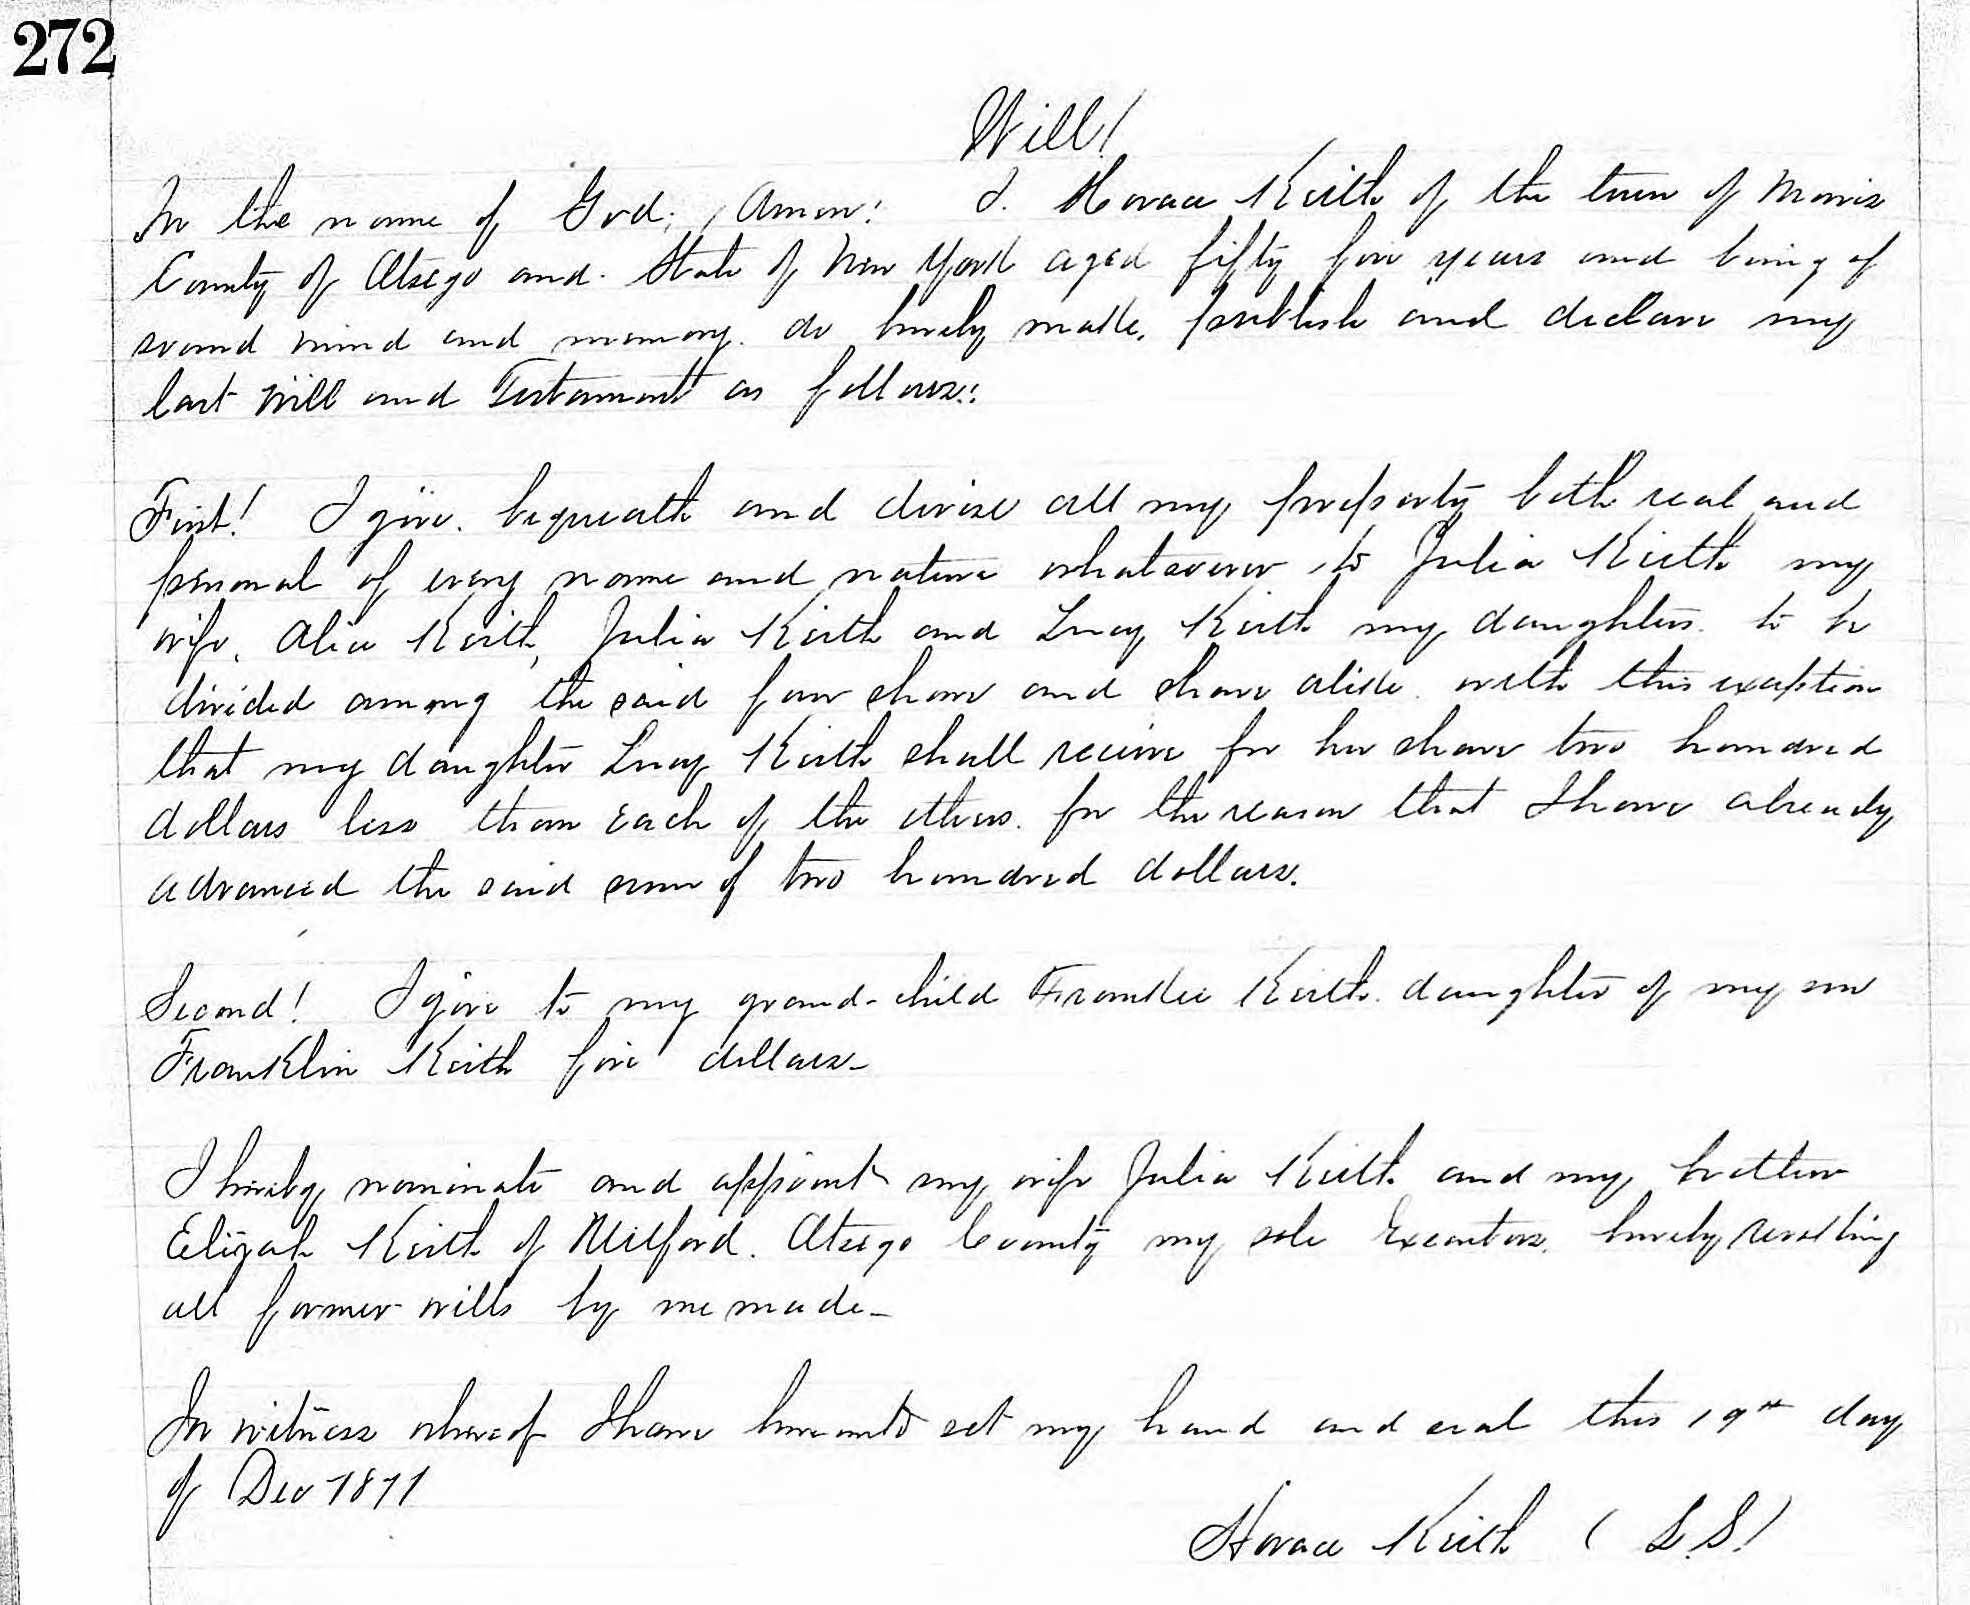 272
Will!
In the name of God, Amen! I. Horace Keith of the town of Morris
County of Otsego and State of New York aged fifty five years and being of
sound mind and memory. do hereby make, publish and declare my
last Will and Testament as follows:
First! I give, bequeath and divise all my property both real and
personal of every name and nature whatsoever to Julia Keith my
wife, Alice Keith, Julia Keith and Lucy Keith my daughters. to be
divided among the said four share and share alike. with this exception
that my daughter Lucy Keith shall receive for her share two hundred
dollars less than Each of the others. for the reason that I have already
advanced the said sum of two hundred dollars.
Second! I give to my grand-child Frankie Keith. daughter of my son
Franklin Keith five dollars-
I hereby nominate and appoint my wife Julia Keith and my brother
Elijah Keith of Milford. Otsego County my sole Executors, hereby revoking
all former wills by me made-
In witness whereof I have hereunto set my hand and seal this 19th day
of Dec 1871
Horace Keith (L.S.)